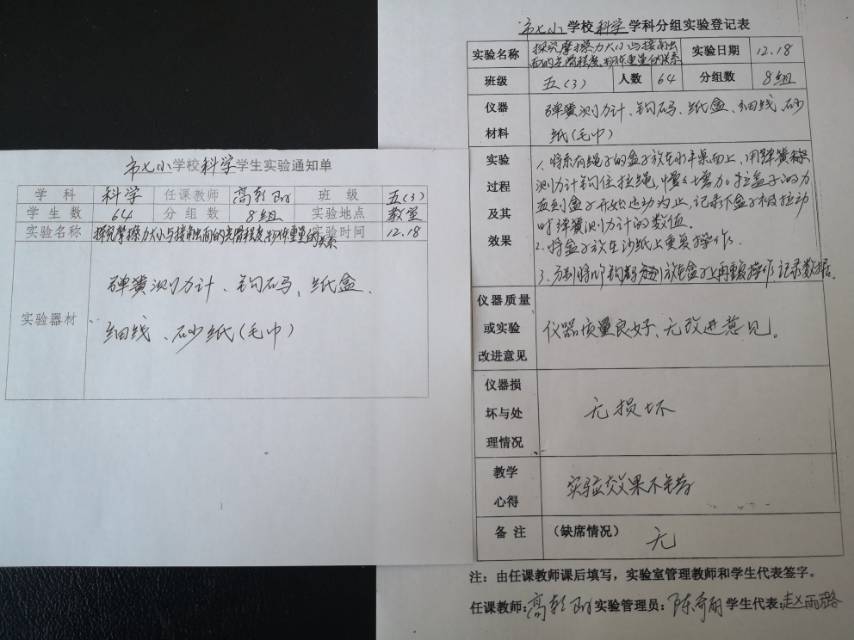 市七小学校科学学生实验通知单
学科 科学 任课教师 班级 五(3)
学生数 64 分组数 8组 实验地点 教室
实验名称 探究摩擦力大小与接触面的光滑程度、物体重量的关系 实验时间 12.18
实验器材
弹簧测力计、钩码、纸盒、
细线、砂纸(毛巾)
市七小学校科学学科分组实验登记表
实验名称 探究摩擦力大小与接触
面的光滑程度、物体重量的关系 实验日期 12.18
班级 五(3) 人数 64 分组数 8组
仪器 弹簧测力计、钩码、纸盒、细线、砂
材料 纸(毛巾)
实验 1.将系有绳子的盒子放在水平桌面上,用弹簧
过程 测力计钩住拉绳,慢慢增加拉盒子的力
及其 直到盒子开始运动为止,记录下盒子被拉动
效果 时弹簧测力计的数值。
2.将盒子放在沙纸上重复操作.
3.分别将 钩码 放在盒子上再重复操作,记录数据.
仪器质量
或实验 仪器质量良好、无改进意见。
改进意见
仪器损
坏与处 无损坏
理情况
教学
心得 实验效果不错
备注 (缺席情况) 无
注:由任课教师课后填写,实验室管理教师和学生代表签字。
任课教师: 实验管理员: 学生代表:赵雨璐